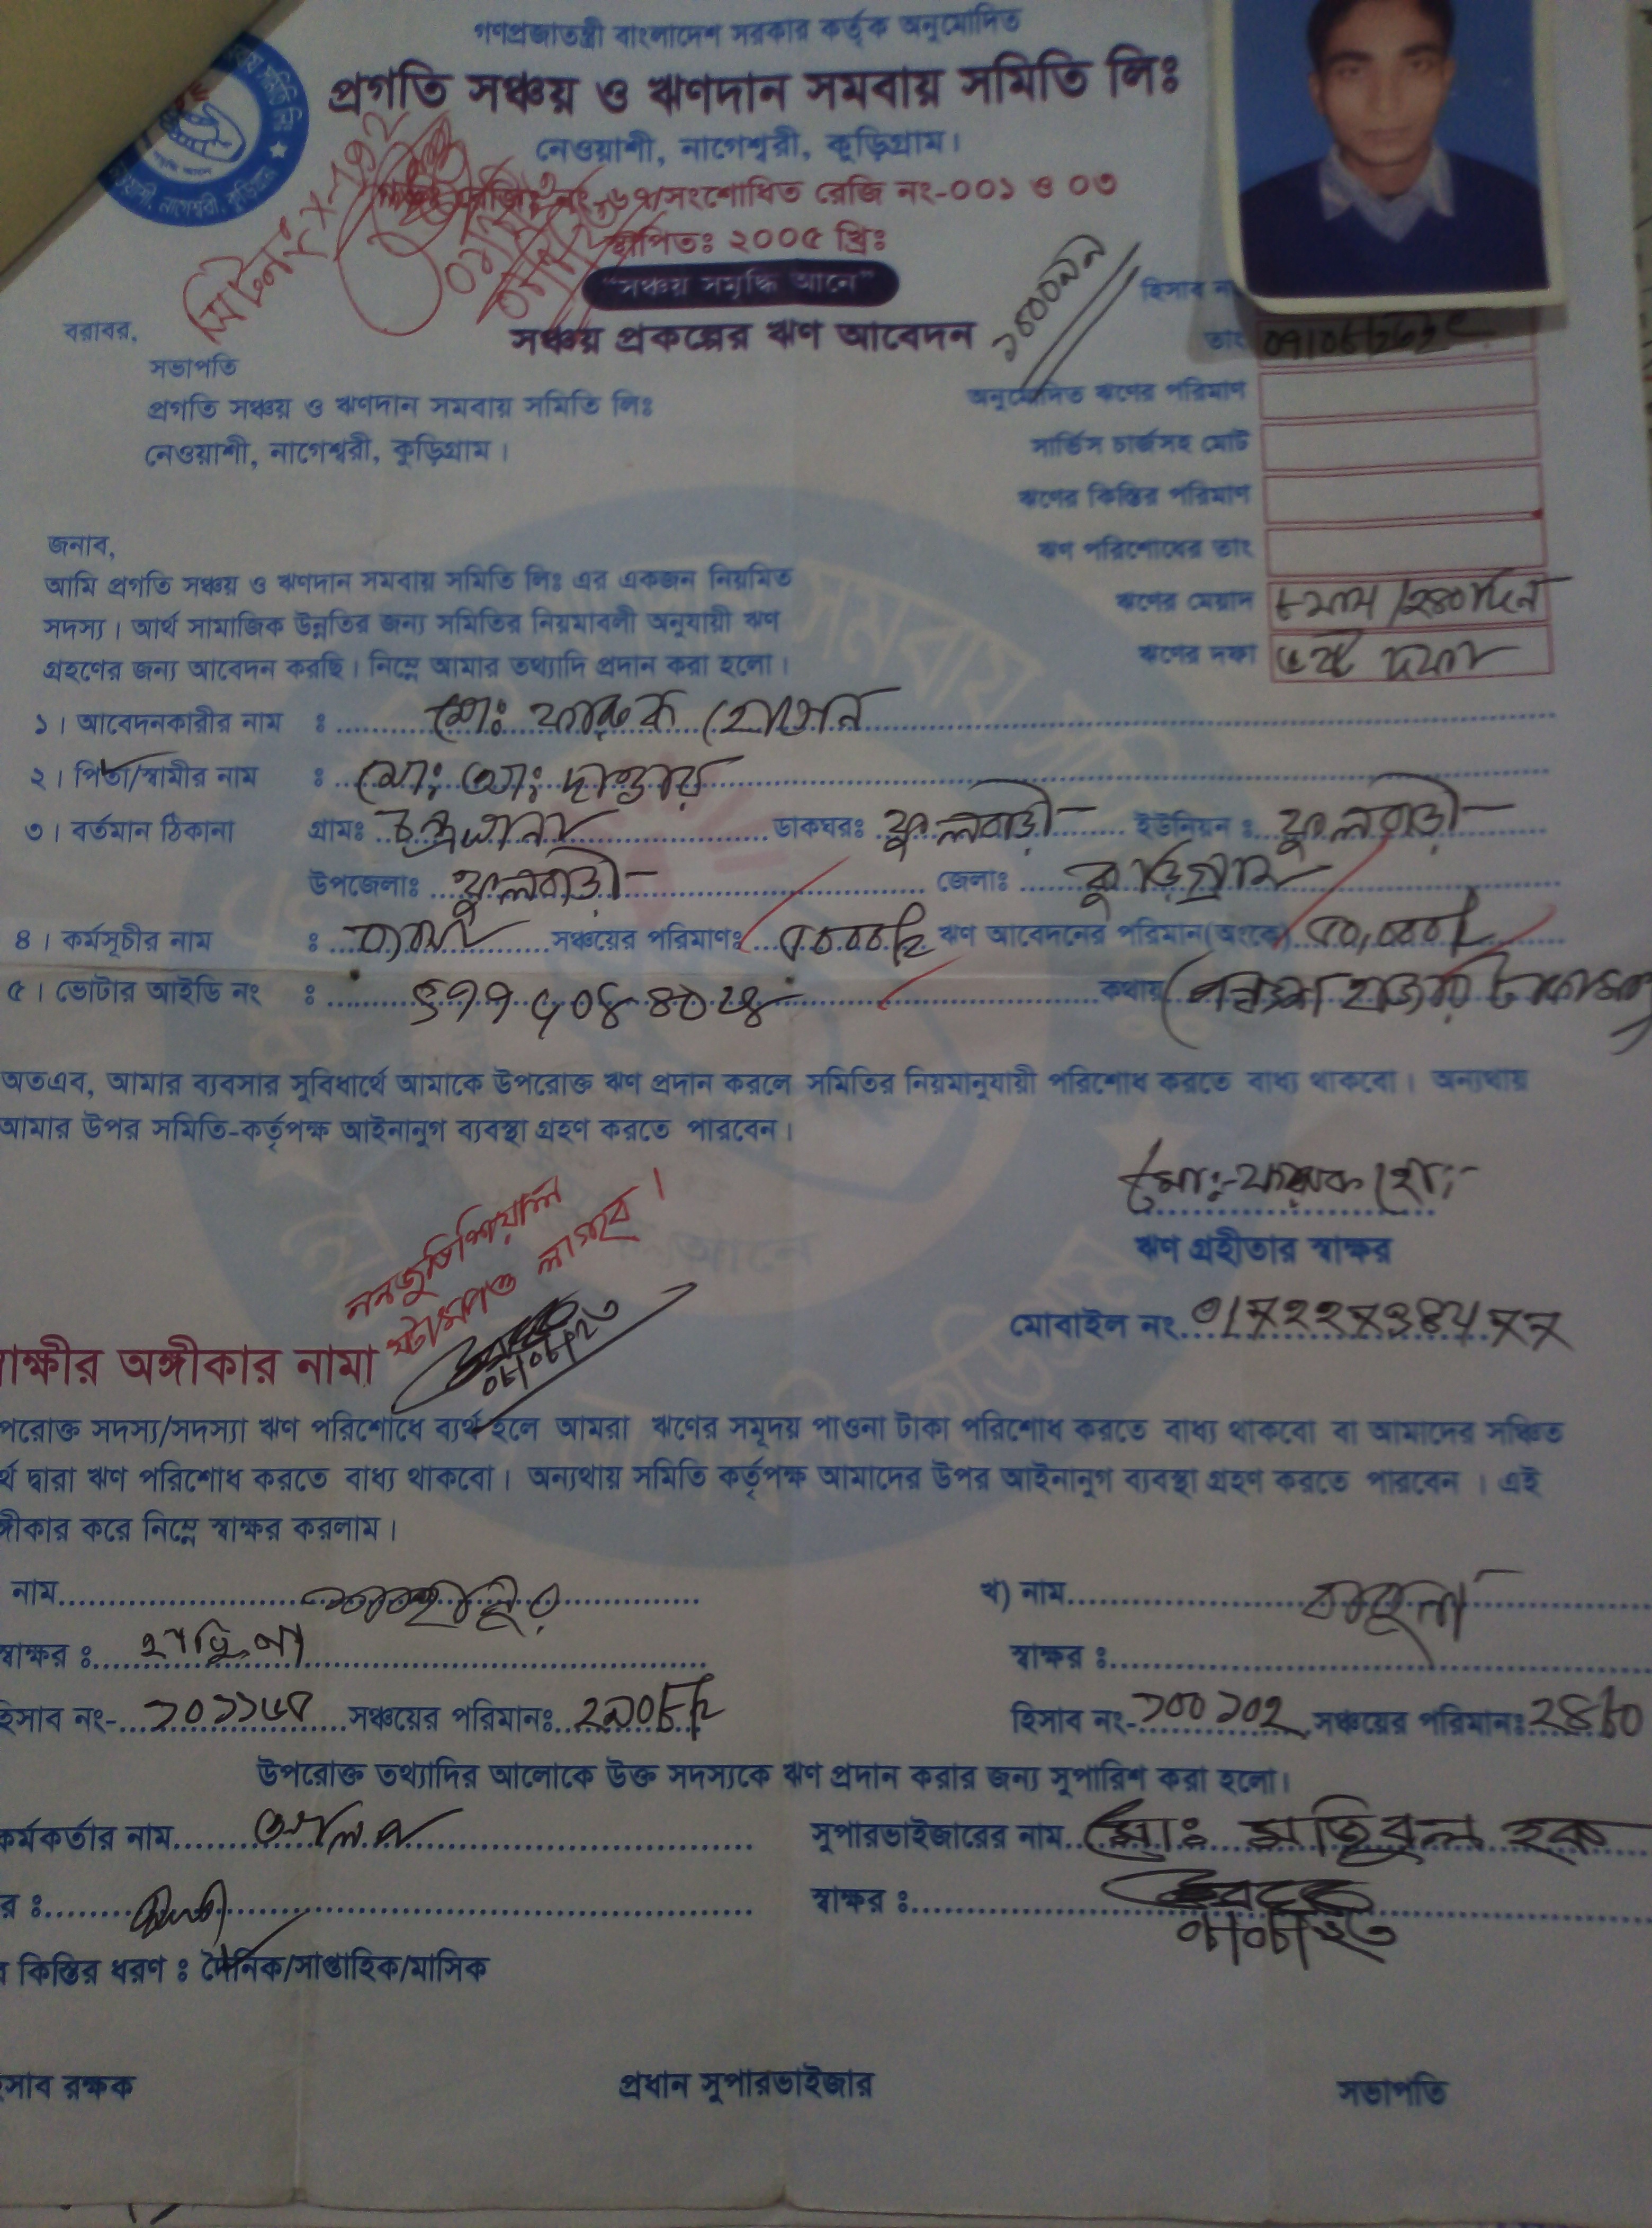 গণপ্রজাতন্ত্রী বাংলাদেশ সরকার কর্তৃক অনুমোদিত
প্রগতি সঞ্চয় ও ঋণদান সমবায় সমিতি লিঃ
নেওয়াশী, নাগেশ্বরী, কুড়িগ্রাম।
রেজিঃ নং-৬৭/সংশোধিত রেজি নং-০০১ ও ০৩
স্থাপিতঃ ২০০৫ খ্রিঃ
"সঞ্চয় সমৃদ্ধি আনে"
সঞ্চয় প্রকল্পের ঋণ আবেদন
হিসাব নং
তাং
বরাবর,
সভাপতি
প্রগতি সঞ্চয় ও ঋণদান সমবায় সমিতি লিঃ
নেওয়াশী, নাগেশ্বরী, কুড়িগ্রাম।
অনুমোদিত ঋণের পরিমাণ
সার্ভিস চার্জসহ মোট
ঋণের কিস্তির পরিমাণ
ঋণ পরিশোধের তাং
ঋণের মেয়াদ ৮ মাস/২৪০ দিন
ঋণের দফা ৬ষ্ঠ দফা
জনাব,
আমি প্রগতি সঞ্চয় ও ঋণদান সমবায় সমিতি লিঃ এর একজন নিয়মিত
সদস্য। আর্থ সামাজিক উন্নতির জন্য সমিতির নিয়মাবলী অনুযায়ী ঋণ
গ্রহণের জন্য আবেদন করছি। নিম্নে আমার তথ্যাদি প্রদান করা হলো।
১। আবেদনকারীর নাম : মোঃ ফারুক হোসেন
২। পিতা/স্বামীর নাম : মোঃ আঃ ছাত্তার
৩। বর্তমান ঠিকানা গ্রামঃ চন্দ্রখানা ডাকঘরঃ ফুলবাড়ী ইউনিয়ন : ফুলবাড়ী
উপজেলাঃ ফুলবাড়ী জেলাঃ কুড়িগ্রাম
৪। কর্মসূচীর নাম : ব্যবসা সঞ্চয়ের পরিমাণঃ ৫০০০/= ঋণ আবেদনের পরিমান(অংকে) ৫০,০০০/=
৫। ভোটার আইডি নং : কথায় (পঞ্চাশ হাজার টাকা মাত্র)
অতএব, আমার ব্যবসার সুবিধার্থে আমাকে উপরোক্ত ঋণ প্রদান করলে সমিতির নিয়মানুযায়ী পরিশোধ করতে বাধ্য থাকবো। অন্যথায়
আমার উপর সমিতি-কর্তৃপক্ষ আইনানুগ ব্যবস্থা গ্রহণ করতে পারবেন।
মোঃ ফারুক হোঃ
ঋণ গ্রহীতার স্বাক্ষর
মোবাইল নং
ননজুডিশিয়াল
ষ্ট্যাম্পও লাগবে।
০৮/০৮/২৩
াক্ষীর অঙ্গীকার নামা
পরোক্ত সদস্য/সদস্যা ঋণ পরিশোধে ব্যর্থ হলে আমরা ঋণের সমূদয় পাওনা টাকা পরিশোধ করতে বাধ্য থাকবো বা আমাদের সঞ্চিত
র্থ দ্বারা ঋণ পরিশোধ করতে বাধ্য থাকবো। অন্যথায় সমিতি কর্তৃপক্ষ আমাদের উপর আইনানুগ ব্যবস্থা গ্রহণ করতে পারবেন। এই
ঙ্গীকার করে নিম্নে স্বাক্ষর করলাম।
নাম খ) নাম
স্বাক্ষর : স্বাক্ষর :
হিসাব নং- ১০১১৬৫ সঞ্চয়ের পরিমানঃ ২৯০৮/= হিসাব নং- ১০০১০২ সঞ্চয়ের পরিমানঃ ২৪৮০
উপরোক্ত তথ্যাদির আলোকে উক্ত সদস্যকে ঋণ প্রদান করার জন্য সুপারিশ করা হলো।
কর্মকর্তার নাম সুপারভাইজারের নাম মোঃ মজিবুল হক
র : স্বাক্ষর :
০৮/০৮/২৩
কিস্তির ধরণ : দৈনিক/সাপ্তাহিক/মাসিক
হিসাব রক্ষক প্রধান সুপারভাইজার সভাপতি